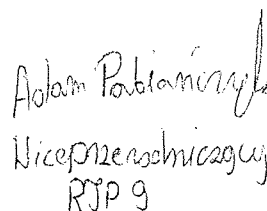 Adam Pabiańczyk
Wiceprzewodniczący
RJP 9